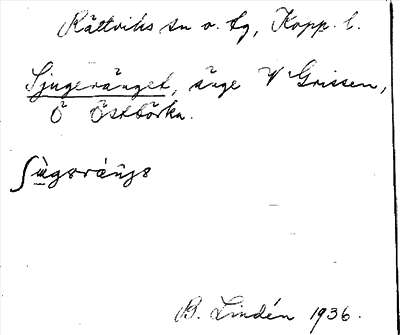 Rättviks sn o. tg, Kopp. l.
Sjugeränget, änge V Grissen,
Ö Östbörka.
ʃùgsrä̀ŋs
B. Lindén 1936.